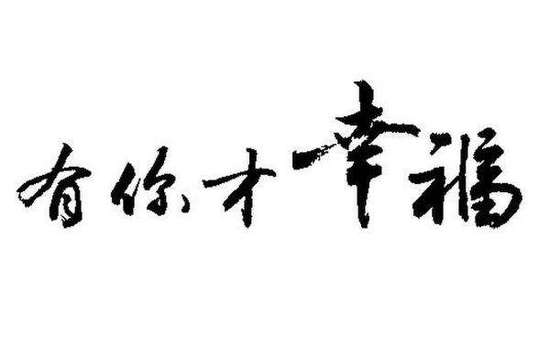 有你才幸福